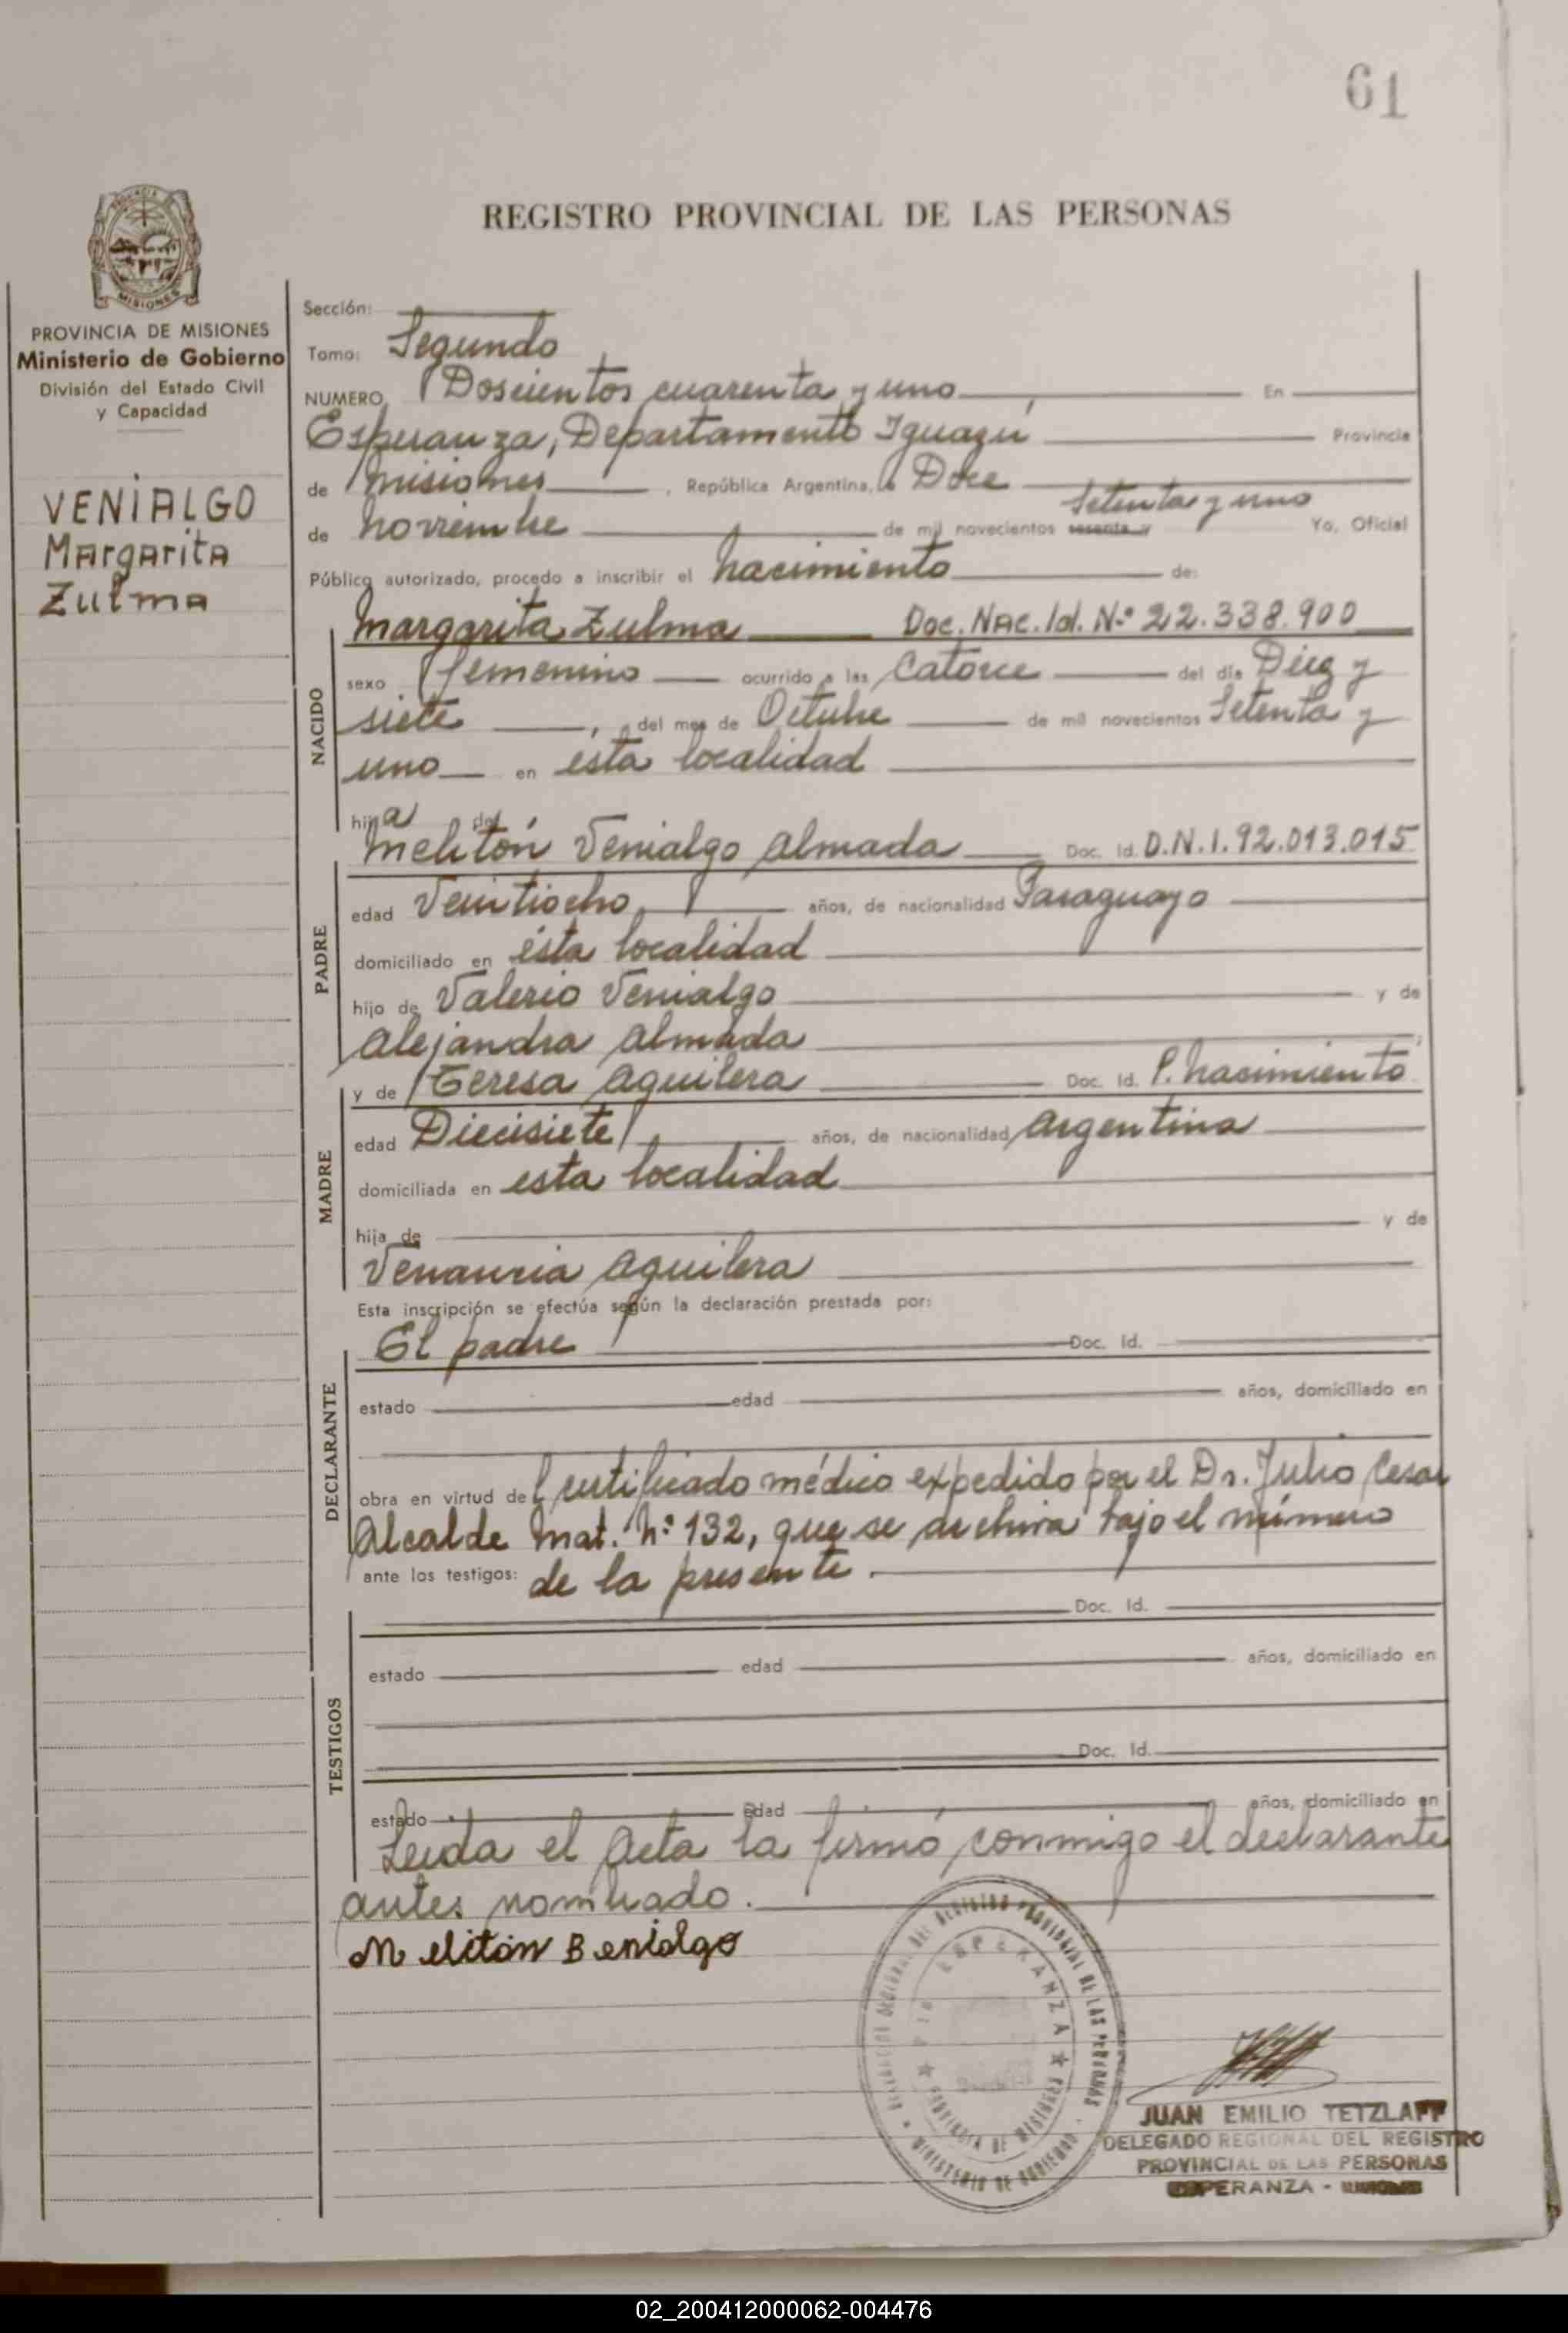 61
REGISTRO PROVINCIAL DE LAS PERSONAS
PROVINCIA DE MISIONES
Ministerio de Gobierno
División del Estado Civil
y Capacidad
VENIALGO
Margarita
Zulma
Sección:
Tomo: Segundo
NUMERO Doscientos cuarenta y uno, En
Esperanza, Departamento Iguazú Provincia
de Misiones, República Argentina, a Doce
de Noviembre de mil novecientos sesenta y Setenta y uno Yo, Oficial
Público autorizado, procedo a inscribir el Nacimiento de:
NACIDO
Margarita Zulma Doc. Nac. Id. N° 22.338.900
sexo femenino ocurrido a las Catorce del día Diez y
siete, del mes de Octubre de mil novecientos Setenta y
uno en esta localidad
hija de
PADRE
Melitón Venialgo Almada Doc. Id. D.N.I. 92.013.015
edad Veintiocho años, de nacionalidad Paraguayo
domiciliado en ésta localidad
hijo de Valerio Venialgo y de
Alejandra Almada
MADRE
y de Teresa Aguilera Doc. Id. P. Nacimiento
edad Diecisiete años, de nacionalidad Argentina
domiciliada en esta localidad
hija de y de
Venancia Aguilera
Esta inscripción se efectúa según la declaración prestada por:
DECLARANTE
El padre Doc. Id.
estado edad años, domiciliado en
obra en virtud del certificado médico expedido por el Dr. Julio Cesar
Alcalde Mat. N° 132, que se archiva bajo el número
ante los testigos: de la presente.
TESTIGOS
Doc. Id.
estado edad años, domiciliado en
Doc. Id.
estado edad años, domiciliado en
Leida el Acta la firmó conmigo el declarante
antes nombrado.
Melitón Benialgo
REGISTRO PROVINCIAL DE LAS PERSONAS
MINISTERIO DE GOBIERNO
ESPERANZA
PROVINCIA DE MISIONES
JUAN EMILIO TETZLAFF
DELEGADO REGIONAL DEL REGISTRO
PROVINCIAL DE LAS PERSONAS
ESPERANZA - MISIONES
02_200412000062-004476